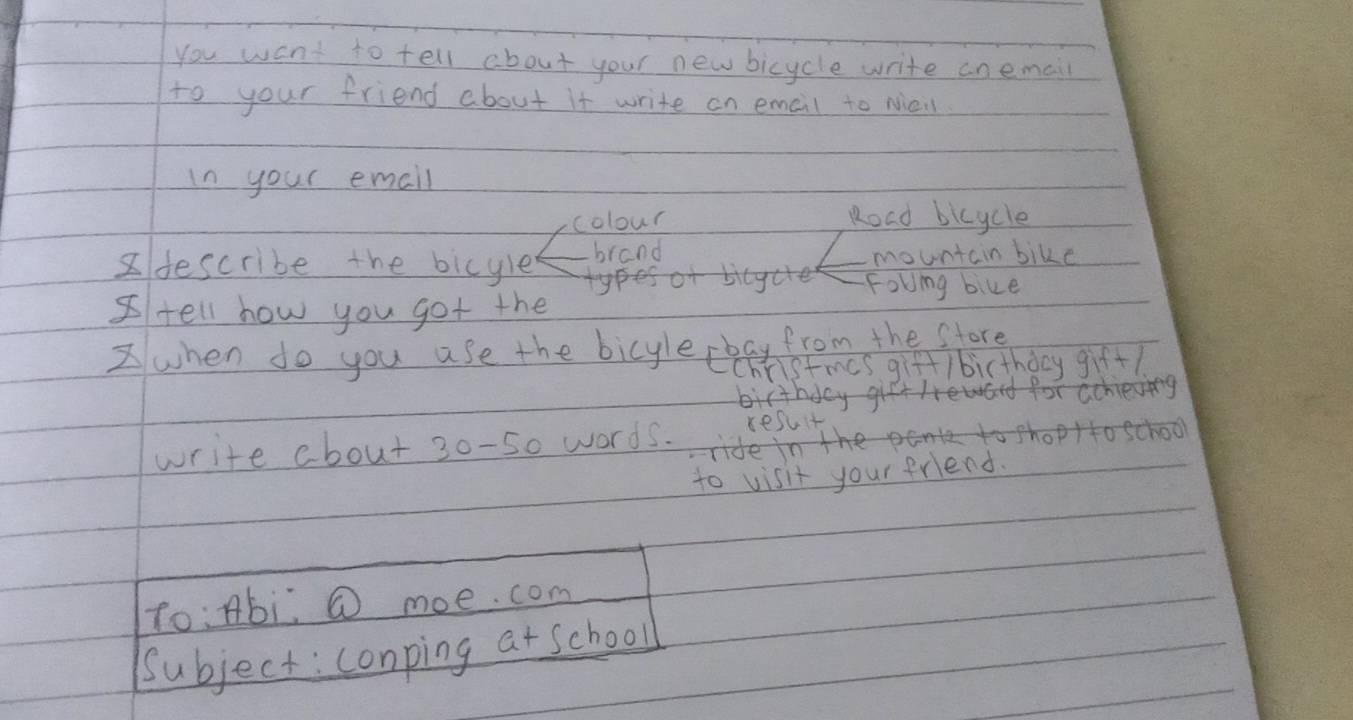 You want to tell about your new bicycle write an email
to your friend about it write an email to Nieil.
in your email
colour
Road bicycle
describe the bicyle
brand
mountain bike
types of bicycle
bike
tell how you got the
when do you use the bicyle
bay from the store
Christmas gift / birthday gift /
birthday gift / reward for achieving
result
write about 30-50 words.
- ride in the to shop / to school
to visit your friend.
To: Abi. @ moe.com
Subject: conping at school